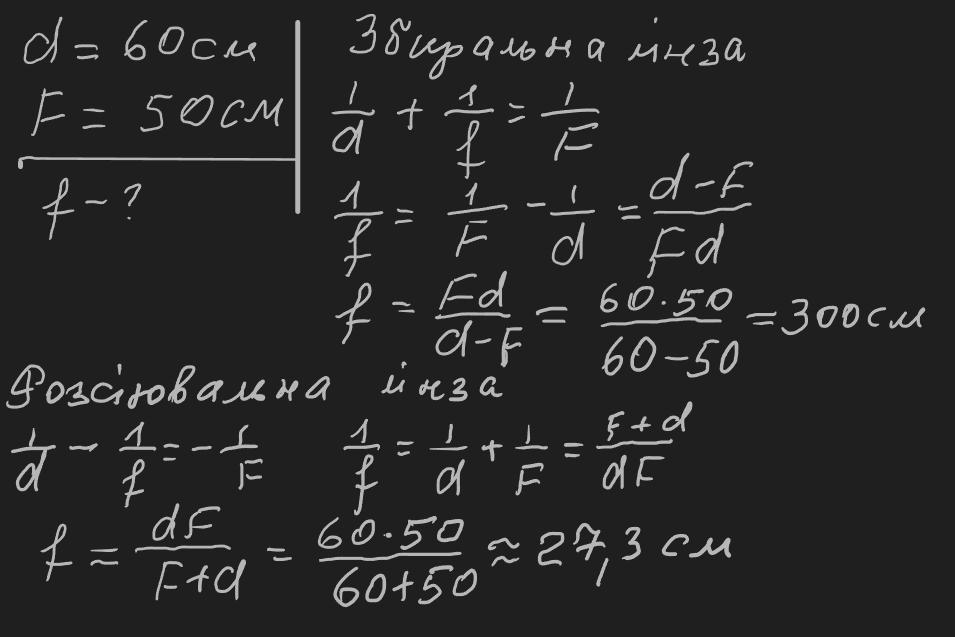 d = 60см
F = 50см
f - ?
Збиральна лінза
1/d + 1/f = 1/F
1/f = 1/F - 1/d = d-F/Fd
f = Fd/d-F = 60·50/60-50 = 300см
Розсіювальна лінза
1/d - 1/f = - 1/F   1/f = 1/d + 1/F = F+d/dF
f = dF/F+d = 60·50/60+50 ≈ 27,3 см